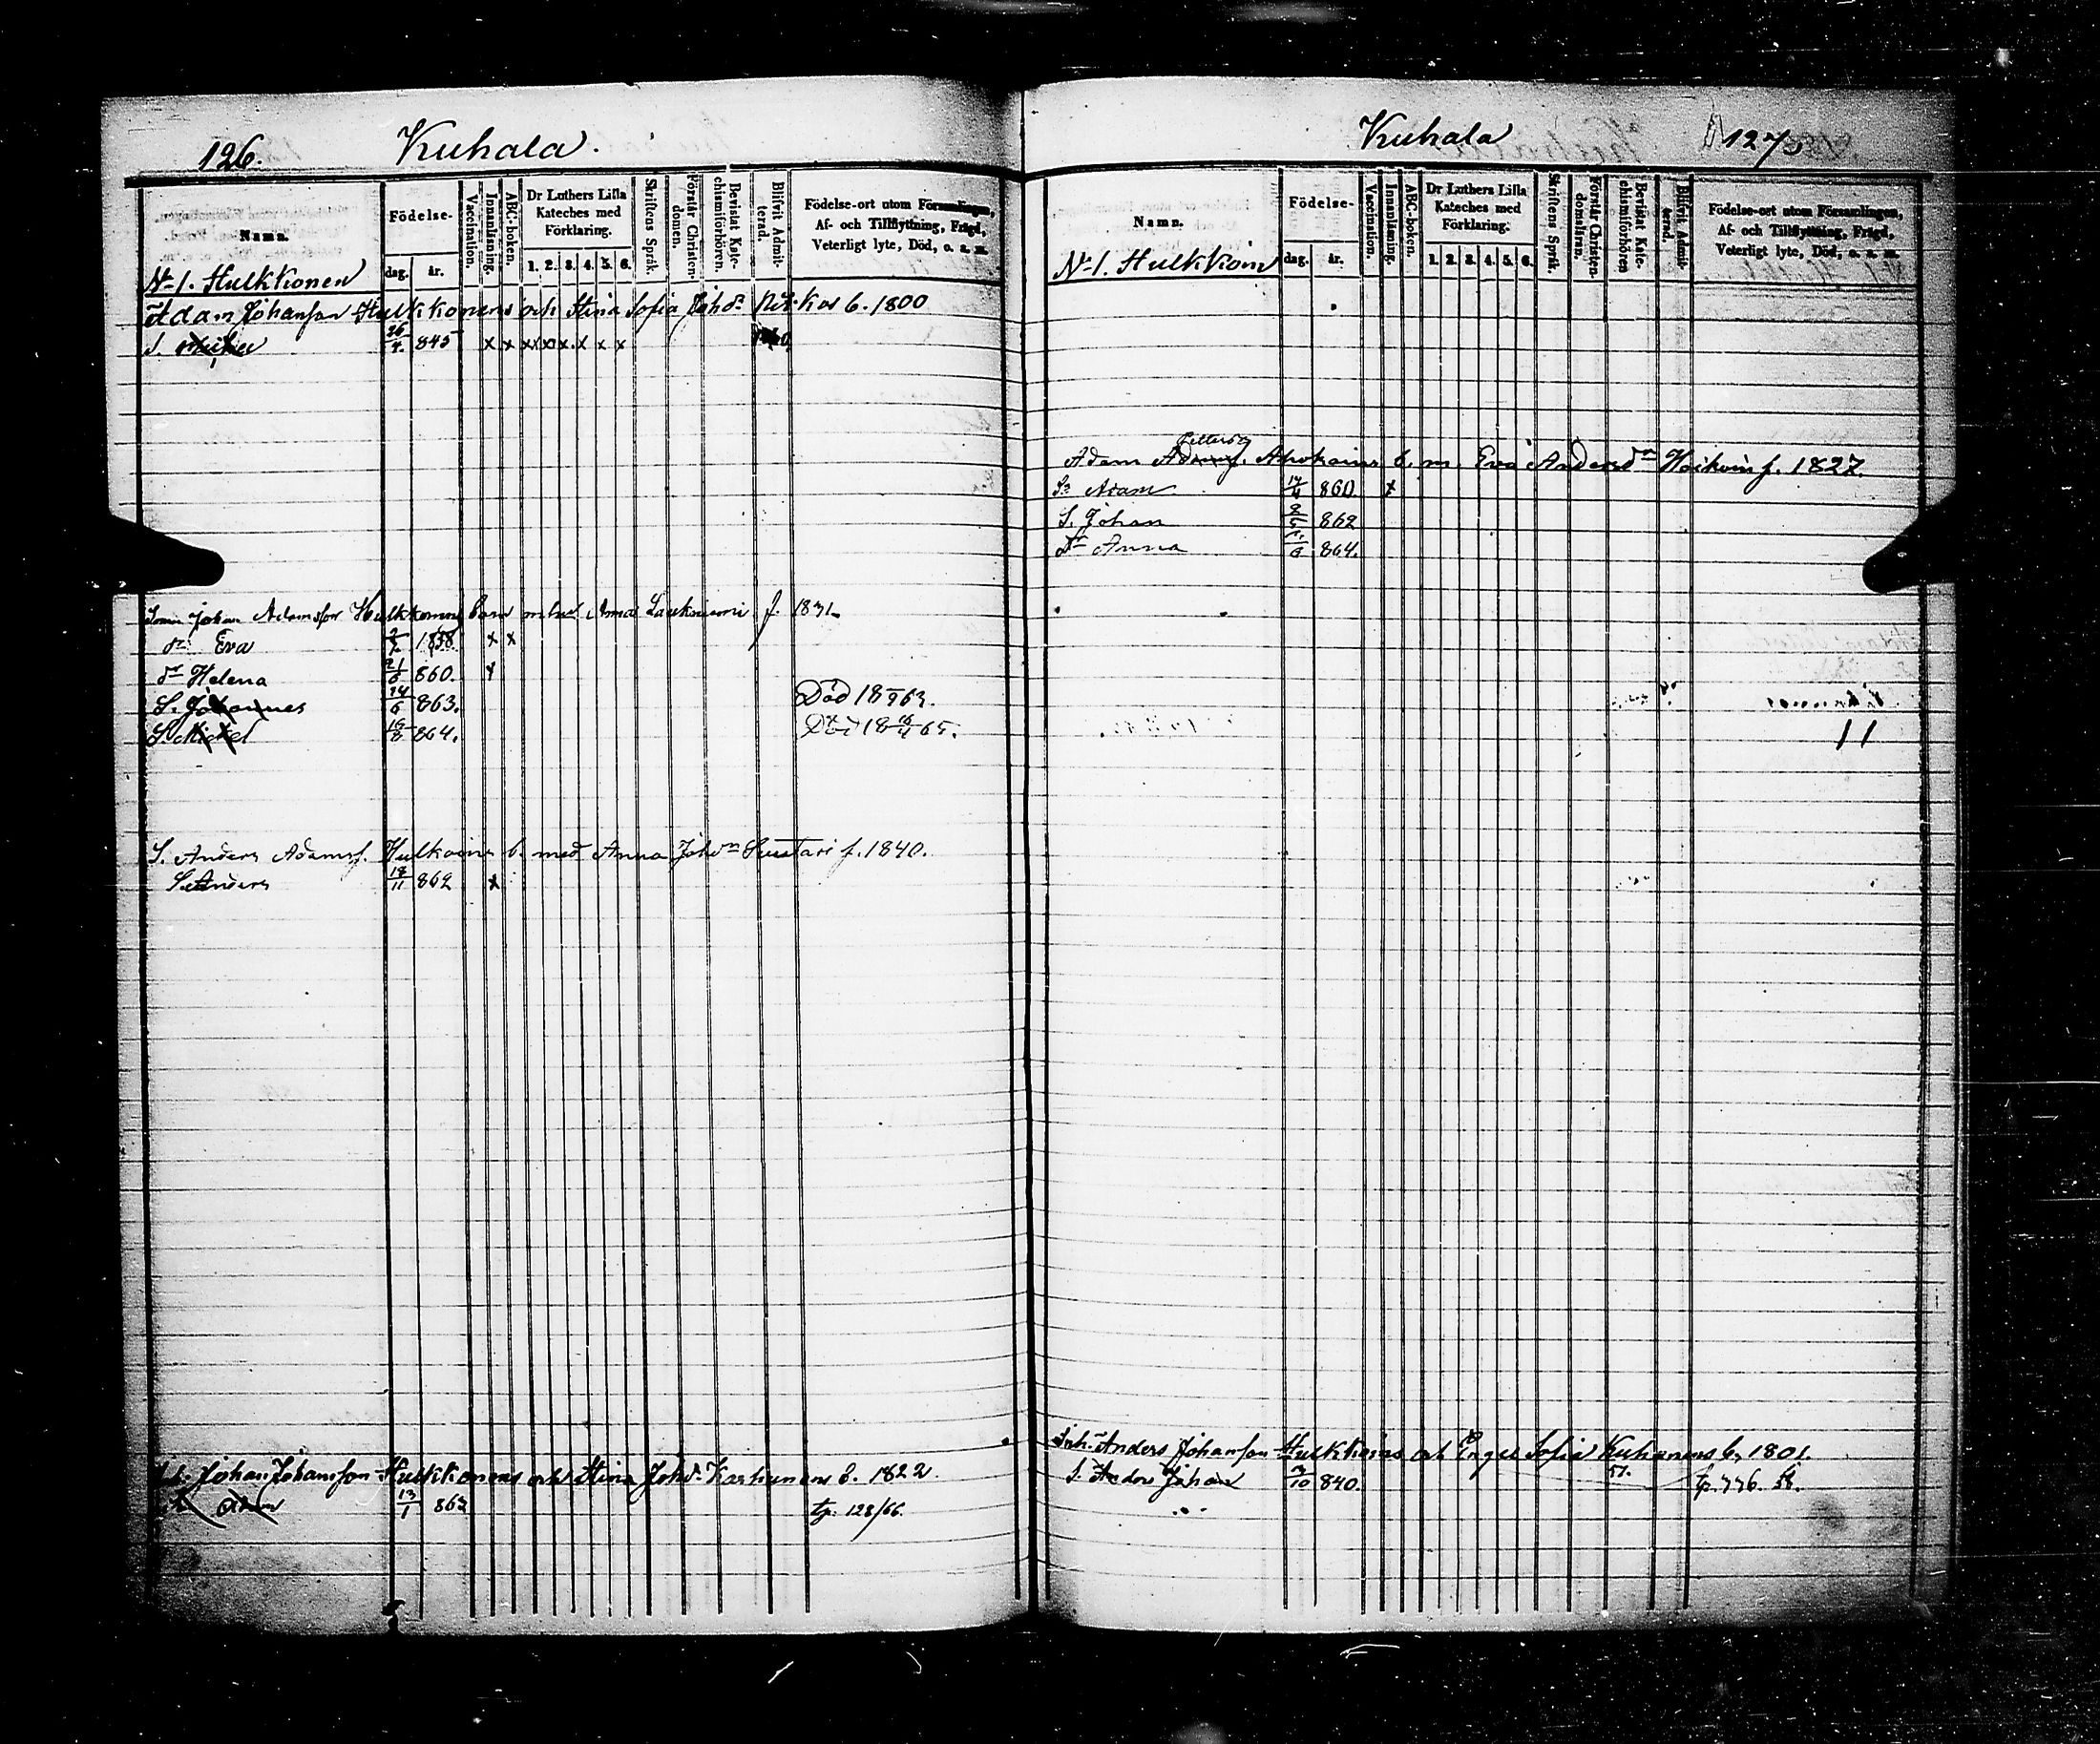 126.
Kuhala.
Namn.
Födelse-
dag. år.
Vaccination.
Innanläsning.
ABC-boken.
Dr Luthers Lilla Kateches med Förklaring.
1. 2. 3. 4. 5. 6.
Skriftens Språk.
Förstår Christen-domen.
Bevistat Kate-chismiförhören.
Blifvit Admit-terad.
Födelse-ort utom Församlingen,
Af- och Tillflyttning, Frägd,
Veterligt lyte, Död, o. s. m.
N-1. Hulkkonen
Adam Johansson Hulkkonens och Stina Sofia Johdr b. 1800
S. 26/4. 845 x x x x x x x x
Johan Adamsson Hulkkonens barn Anna Laukniemi f. 1831.
dr Eva 1858. x x
dr Helena 21/6 860. x
S. Johannes 24/6 863. Död 18 63.
S. Mickel 16/8 864. Död 18 65.
S. Anders Adamsf. Hulkoins b. med Anna Johdr Suutari f. 1840.
S. Anders 18/11 862 x
Johan Johansson Hulkkonens och Stina Johdr Karhunens b. 1822.
Adam 13/1 863 tp. 128/66.
Kuhala
127
Namn.
Födelse-
dag. år.
Vaccination.
Innanläsning.
ABC-boken.
Dr Luthers Lilla Kateches med Förklaring.
1. 2. 3. 4. 5. 6.
Skriftens Språk.
Förstår Christen-domsläran.
Bevistat Kate-chismiförhören
Blifvit Admit-terad.
Födelse-ort utom Församlingen,
Af- och Tillflyttning, Frägd,
Veterligt lyte, Död, o. s. m.
N-1. Hulkkoin
Petters
Adam Adamsf. Ahokains b. m. Eva Andersdr Hoikoin f. 1827.
S. Adam 860 x
S. Johan 2/5 862
dr Anna 864.
11
Anders Johansson Hulkkoins och Engel Sofia Kuhanens b. 1801.
S. Johan 840. 57. tp. 776. 58.